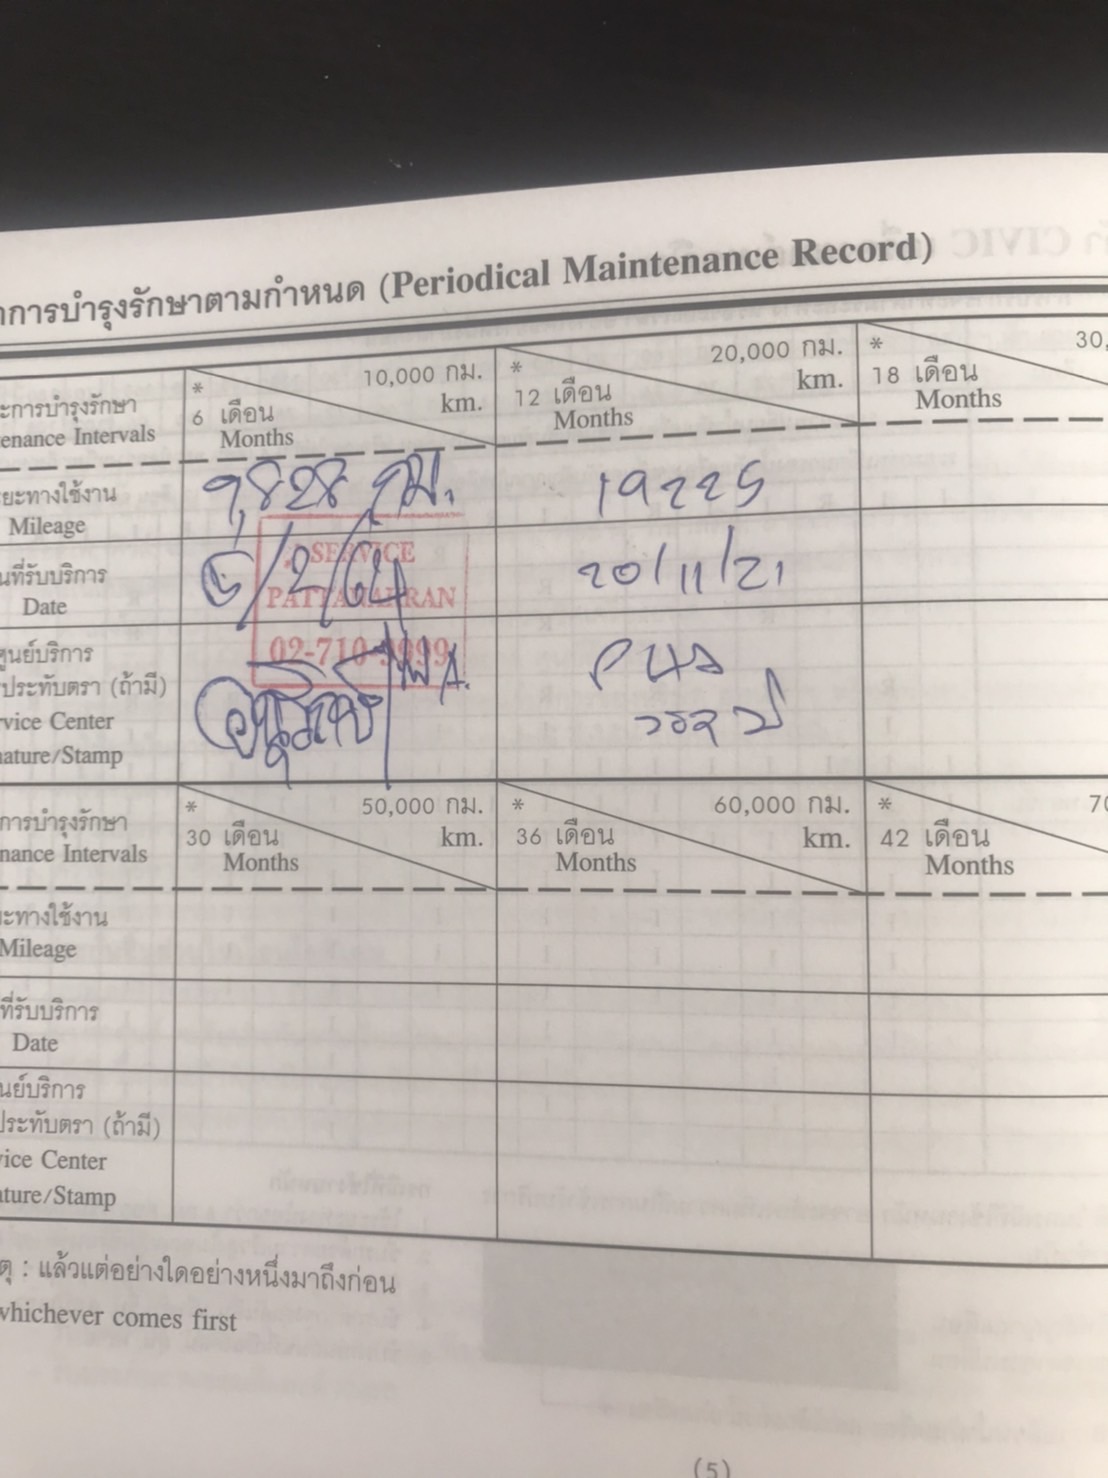 การบำรุงรักษาตามกำหนด (Periodical Maintenance Record)
ะการบำรุงรักษา
enance Intervals
* 10,000 กม.
6 เดือน km.
Months
* 20,000 กม.
12 เดือน km.
Months
* 30,
18 เดือน
Months
ยะทางใช้งาน
Mileage
9,828 กม.
19225
นที่รับบริการ
Date
/2/64
20/11/21
SERVICE
PATTANAKRAN
02-710-9999
ศูนย์บริการ
ประทับตรา (ถ้ามี)
rvice Center
nature/Stamp
* 50,000 กม.
30 เดือน km.
Months
* 60,000 กม.
36 เดือน km.
Months
* 70
42 เดือน
Months
การบำรุงรักษา
nance Intervals
ะทางใช้งาน
Mileage
ที่รับบริการ
Date
นย์บริการ
ประทับตรา (ถ้ามี)
vice Center
ature/Stamp
ตุ : แล้วแต่อย่างใดอย่างหนึ่งมาถึงก่อน
whichever comes first
(5)